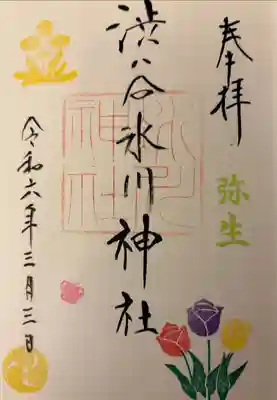 奉拝
弥生
渋谷氷川神社
令和六年三月三日